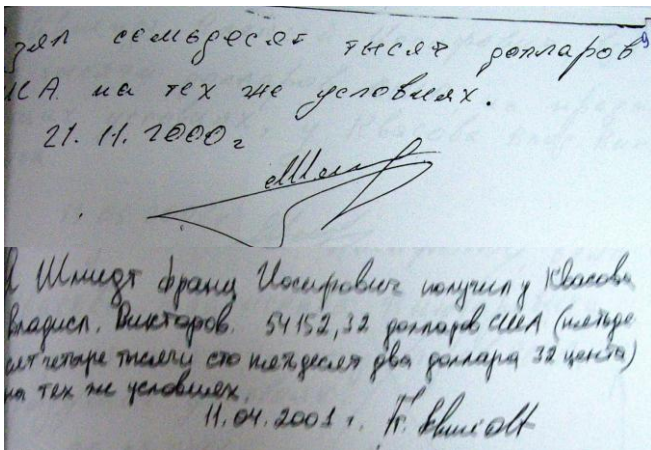 зял семьдесят тысят долларов
США на тех же условиях.
21.11.2000 г
Я Шмидт Франц Иосифович получил у Квасова
Владисл. Викторов. 54152,32 долларов США (пятьде
сят четыре тысячи сто пятьдесят два доллара 32 цента)
на тех же условиях.
11.04.2001 г. Fr. Schmidt